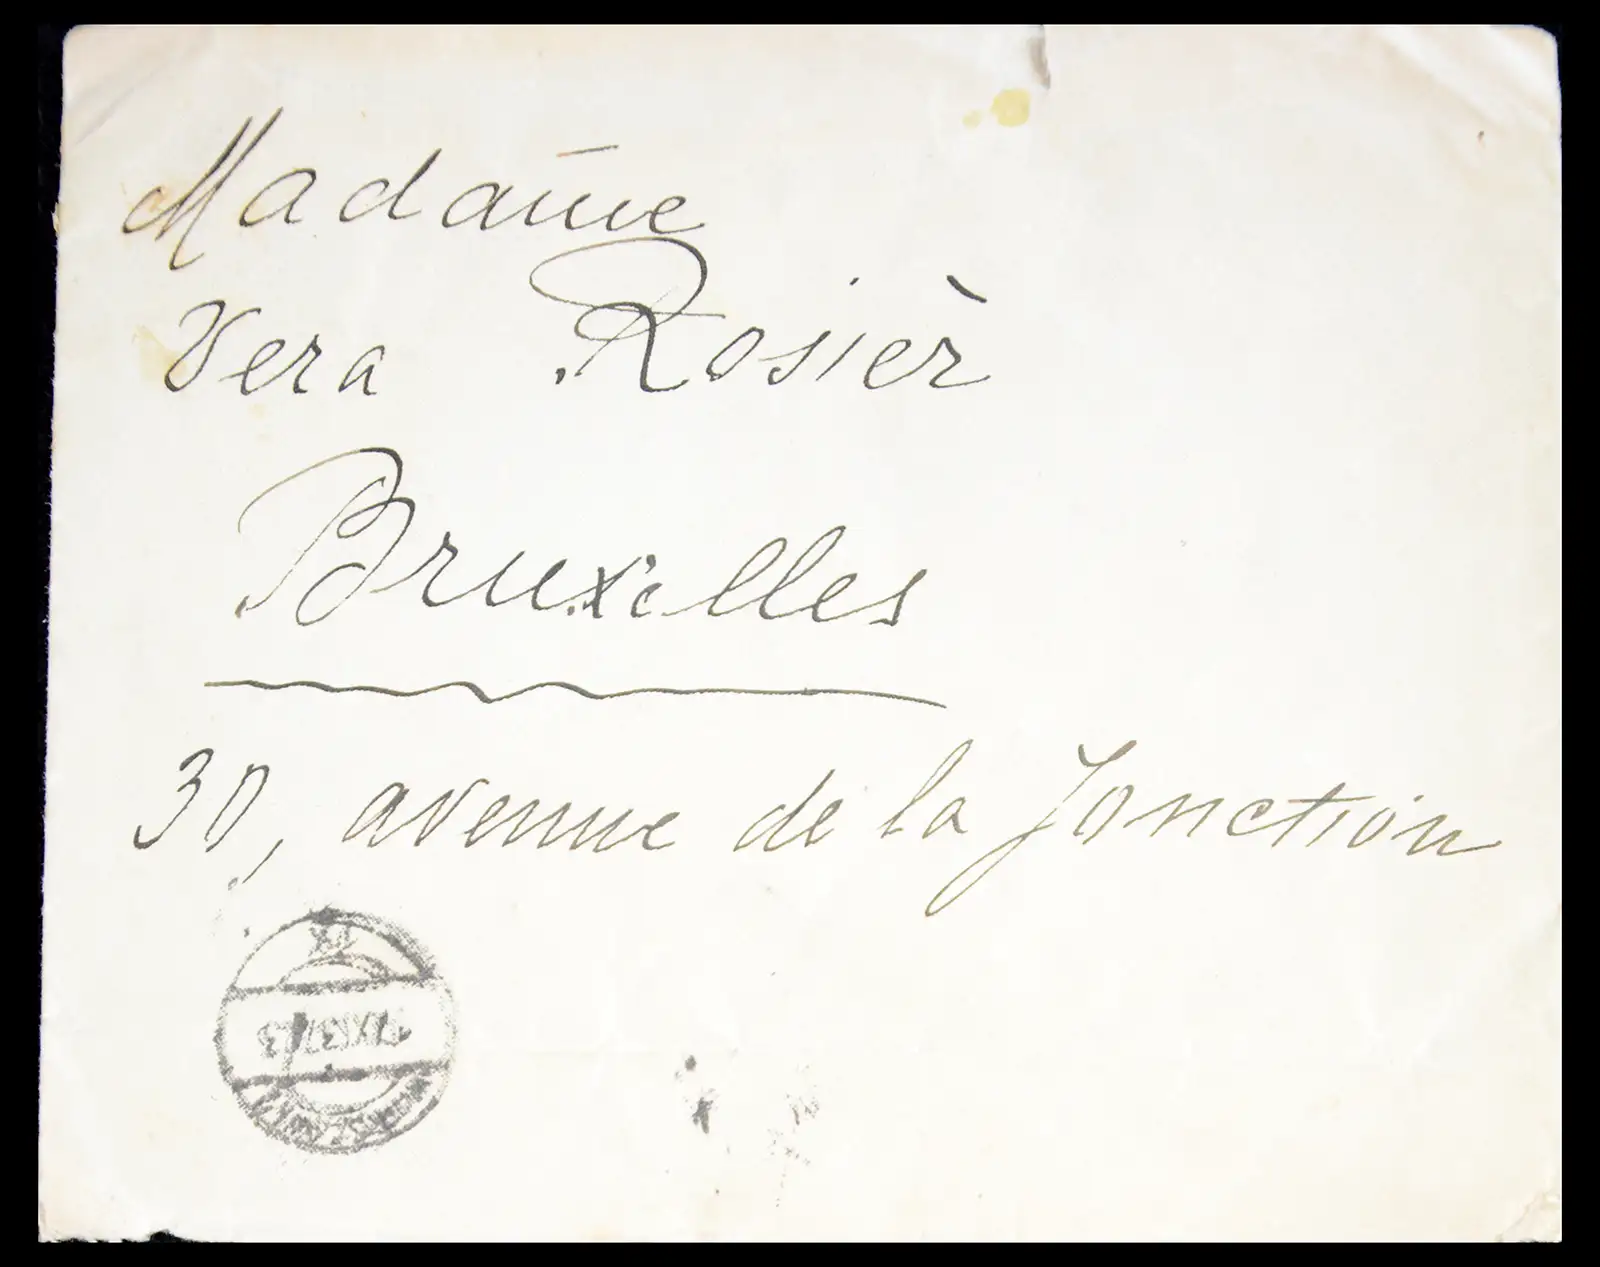 Madame
Vera Rosièr
Bruxelles
30, avenue de la Jonction